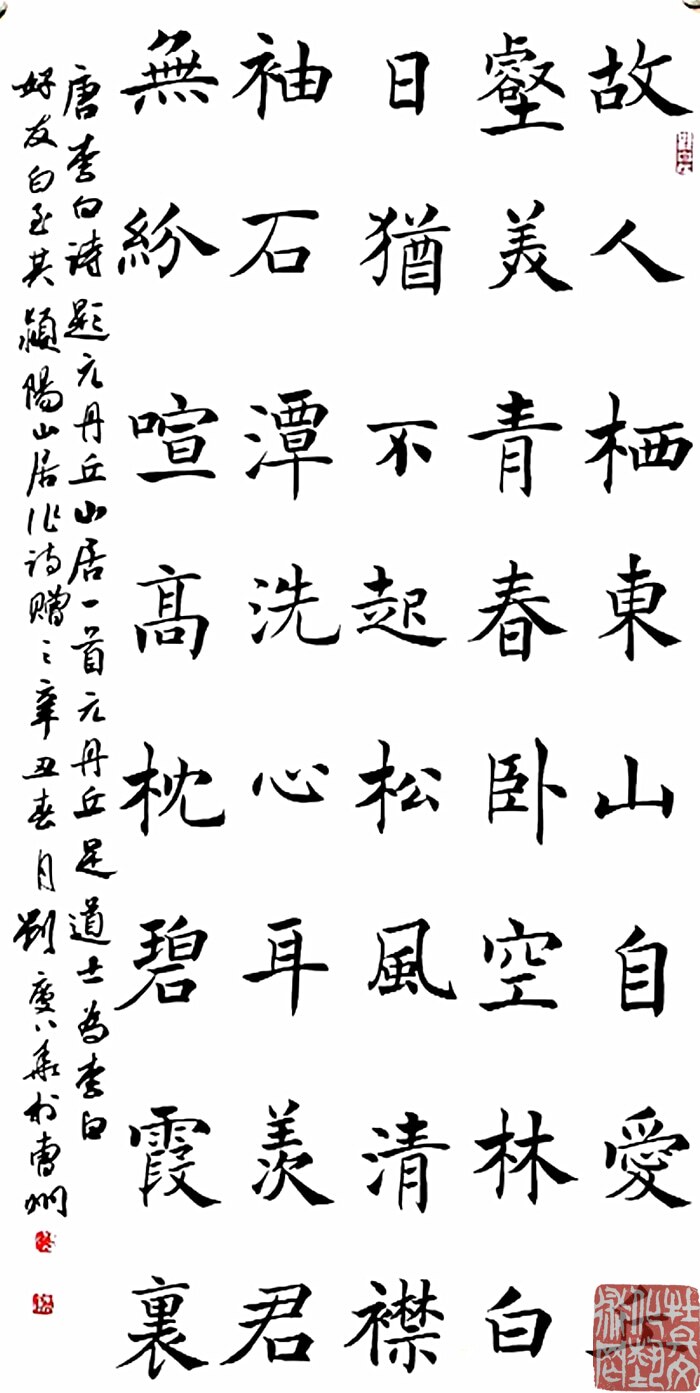 故人栖東山自愛丘
壑美青春卧空林白
日猶不起松風清襟
袖石潭洗心耳羨君
無紛喧髙枕碧霞裏
唐李白詩題元丹丘山居一首元丹丘是道士為李白
好友白至其潁陽山居作詩贈之辛丑春月劉慶於曹州